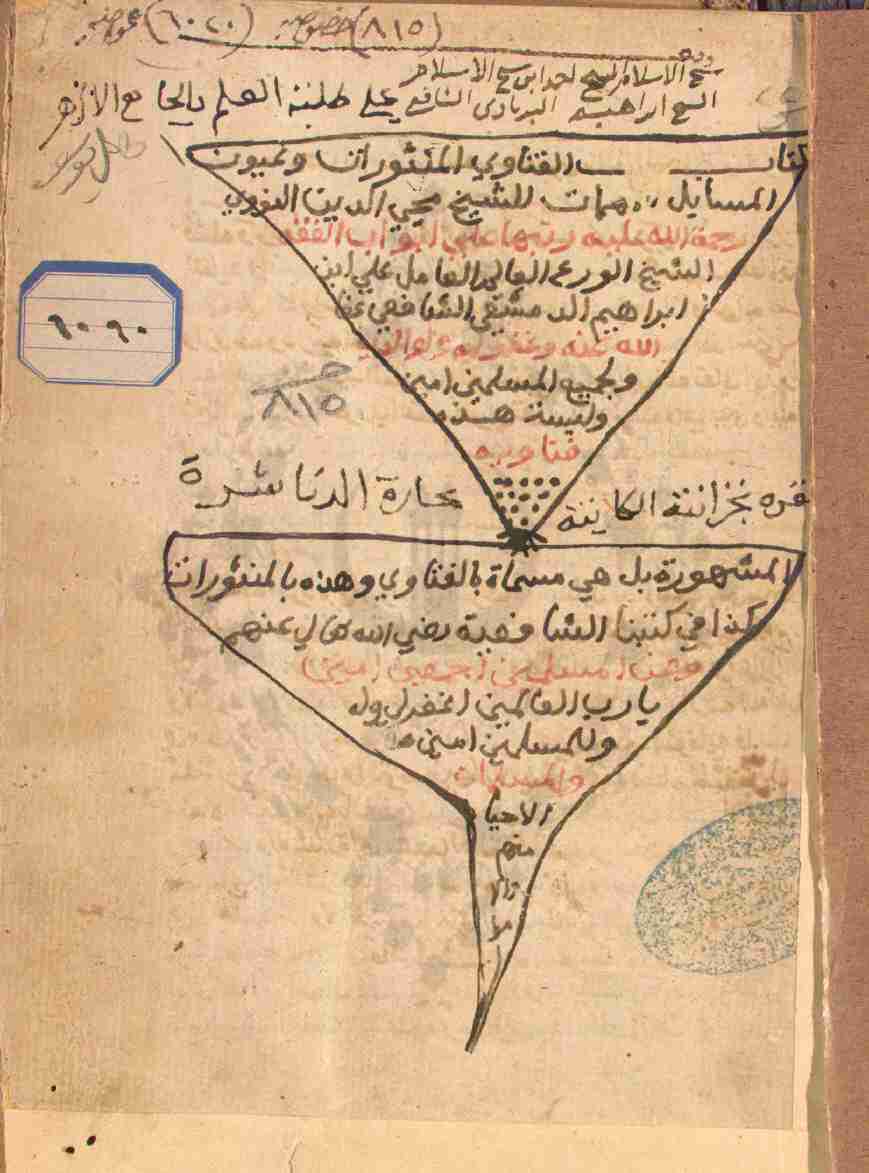 (٨١٥) خصوصية (٦٠٢٠) عمومية
شيخ الاسلام الشيخ احمد ابن شيخ الاسلام
الشيخ ابراهيم البرماوى الشافعي على طلبة العلم بالجامع الازهر
كتاب الفتاوي المنثورات وعيون
المسايل المهمات للشيخ محيي الدين النووي
رحمة الله عليه رتبها على ابواب الفقه
الشيخ الورع العالم العامل علي ابن
ابراهيم الدمشقي الشافعي عفا
الله عنه وغفر له ولوالديه
ولجميع المسلمين امين
وليست هذه
فتاويه
٦٠٢٠
٨١٥
مقره بخزانته الكاينة بحارة الدناشرة
المشهورة بل هي مسماة بالفتاوي وهذه بالمنثورات
كذا في كتبنا الشافعية رضي الله تعالي عنهم
وعن المسلمين اجمعين امين
يارب العالمين اغفر لي وله
وللمسلمين امين
والمسلمات
الاحيا
منهم